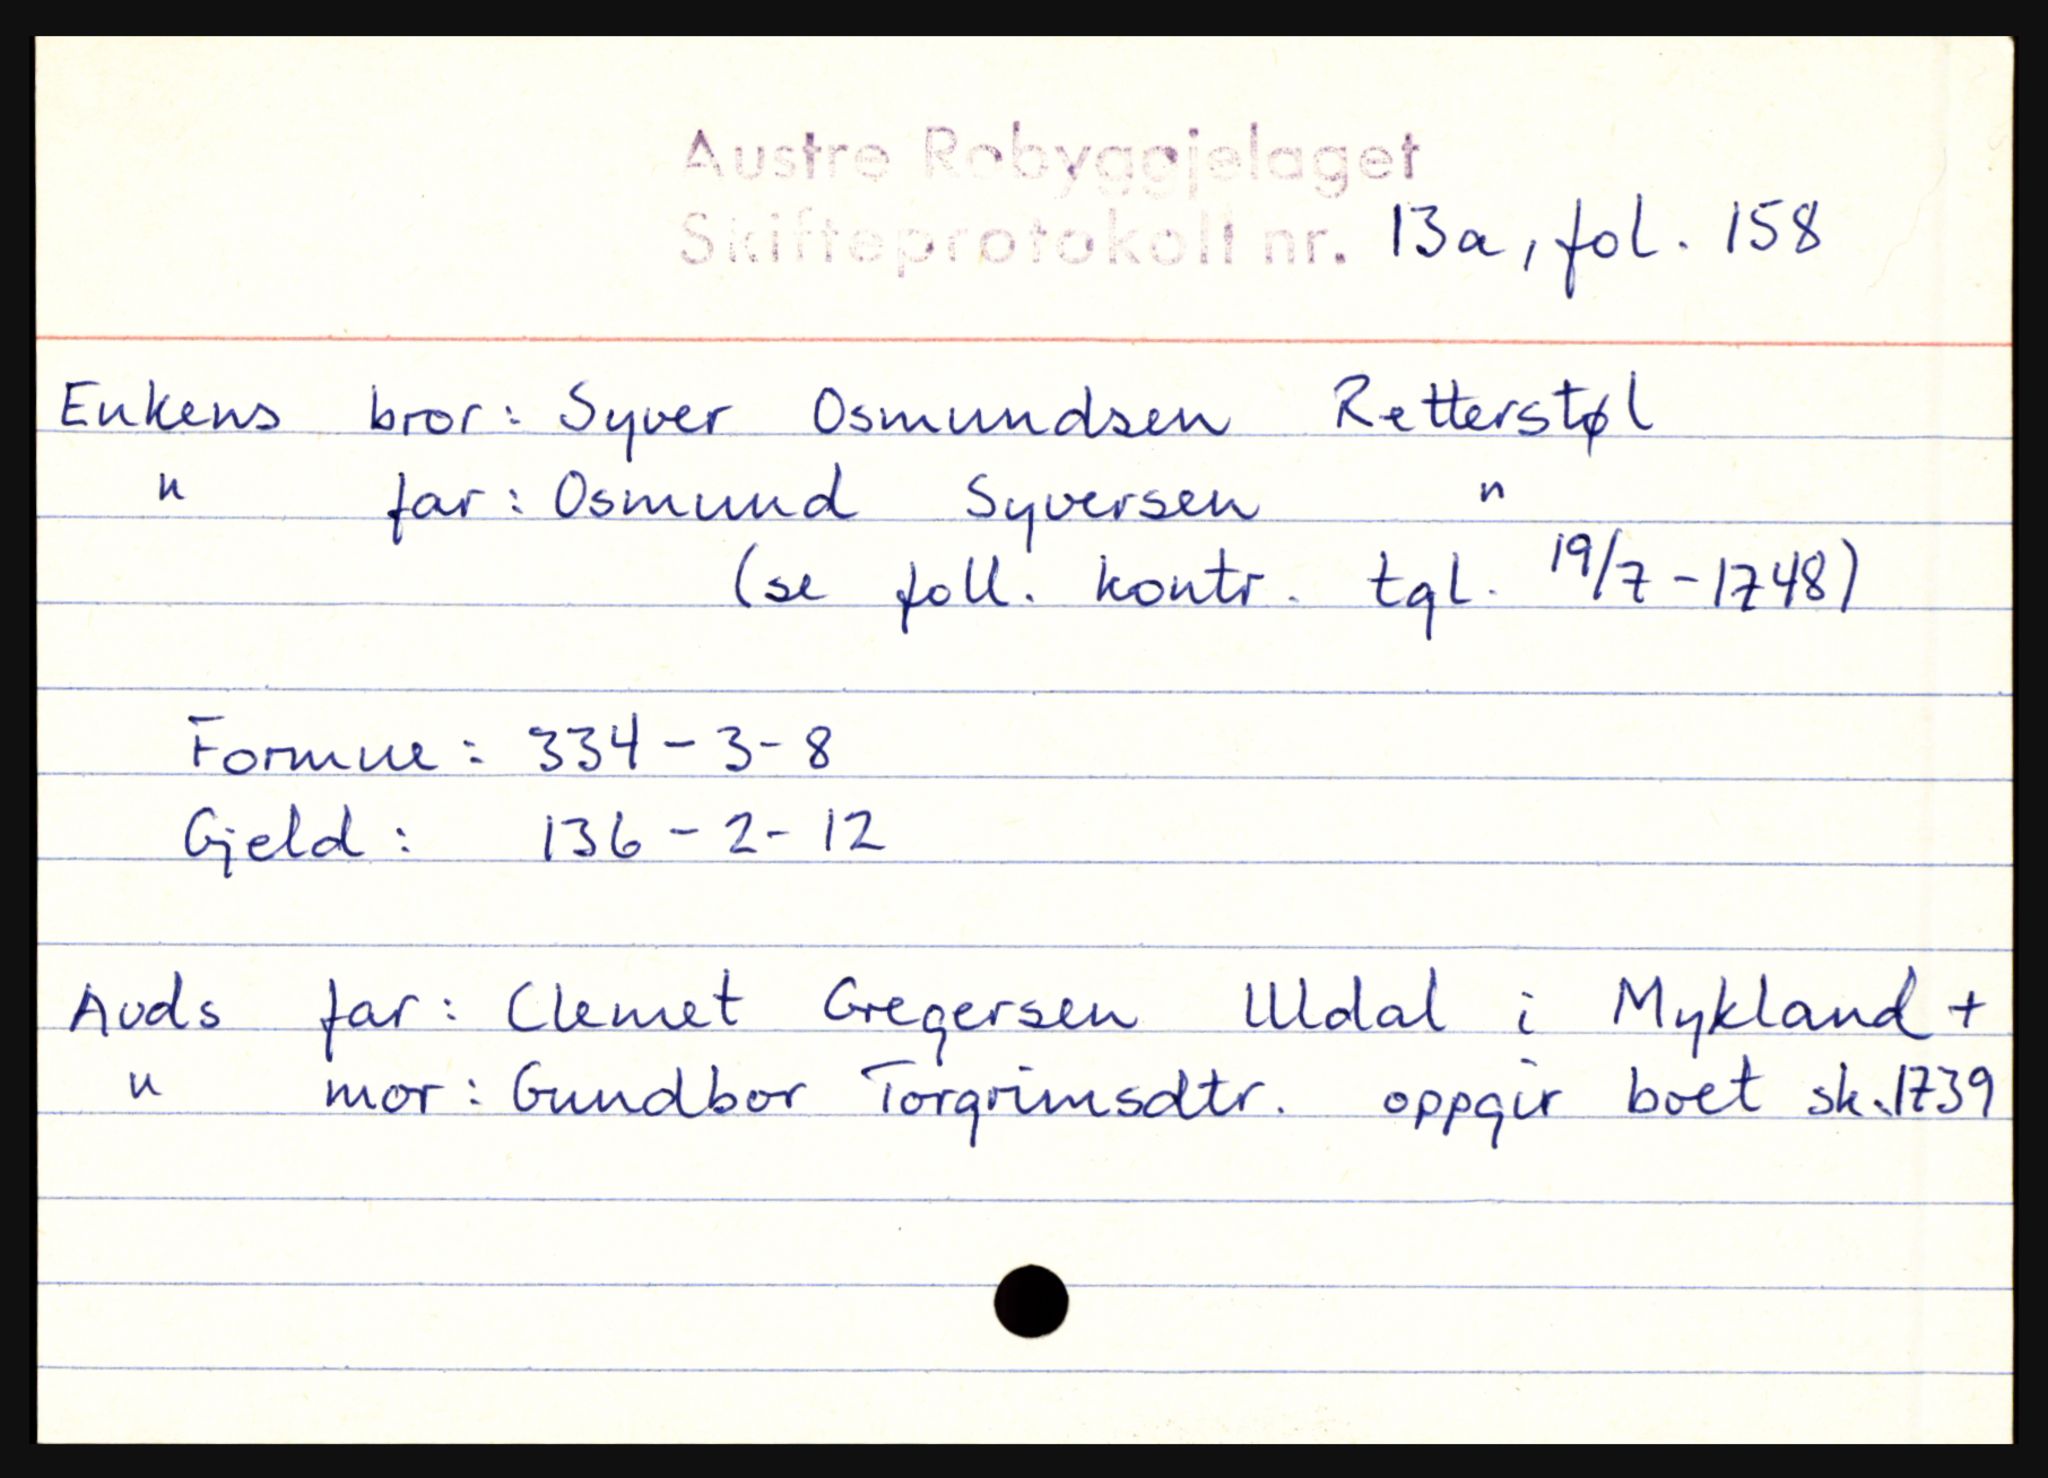 Austre Robyggjelaget
Skifteprotokoll nr. 13a, fol. 158
Enkens bror: Syver Osmundsen Retterstøl
" far: Osmund Syversen "
(se foll. kontr. tgl. 19/7-1748)
Formue: 334-3-8
Gjeld: 136-2-12
Auds far: Clemet Gregersen Uldal i Mykland +
" mor: Gundbor Torgrimsdtr. oppgir boet sk. 1739